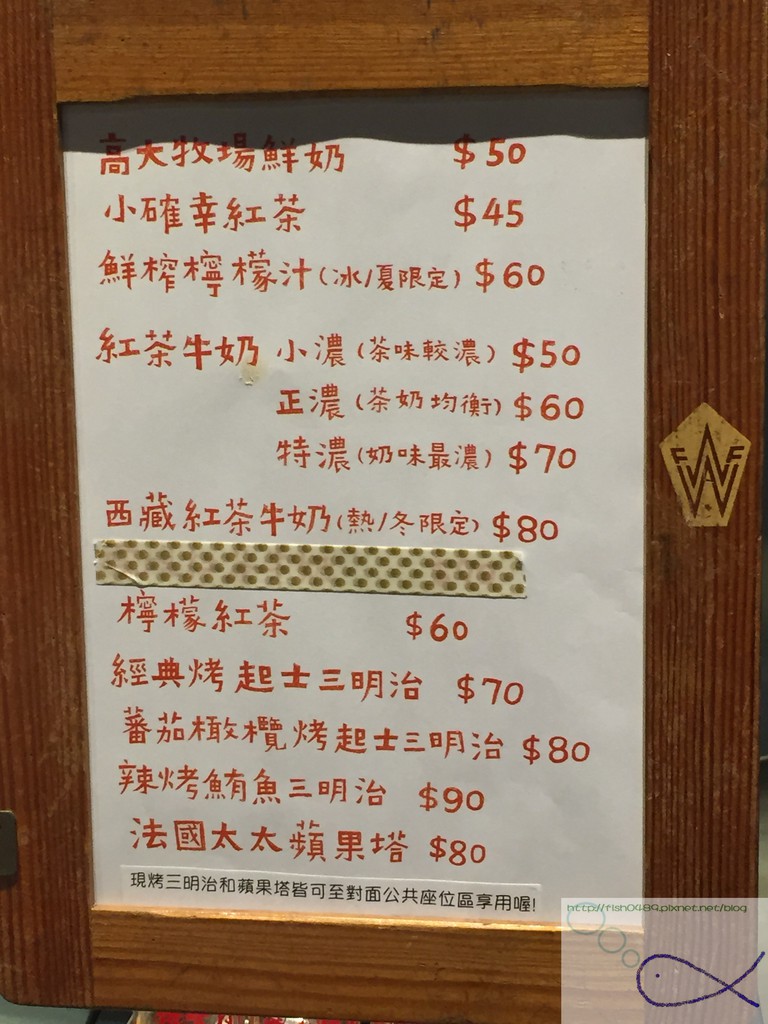 高大牧場鮮奶 $50
小確幸紅茶 $45
鮮榨檸檬汁(冰/夏限定) $60
紅茶牛奶 小濃(茶味較濃) $50
正濃(茶奶均衡) $60
特濃(奶味最濃) $70
西藏紅茶牛奶(熱/冬限定) $80
檸檬紅茶 $60
經典烤起士三明治 $70
蕃茄橄欖烤起士三明治 $80
辣烤鮪魚三明治 $90
法國太太蘋果塔 $80
現烤三明治和蘋果塔皆可至對面公共座位區享用喔!
http://fish0489.pixnet.net/blog